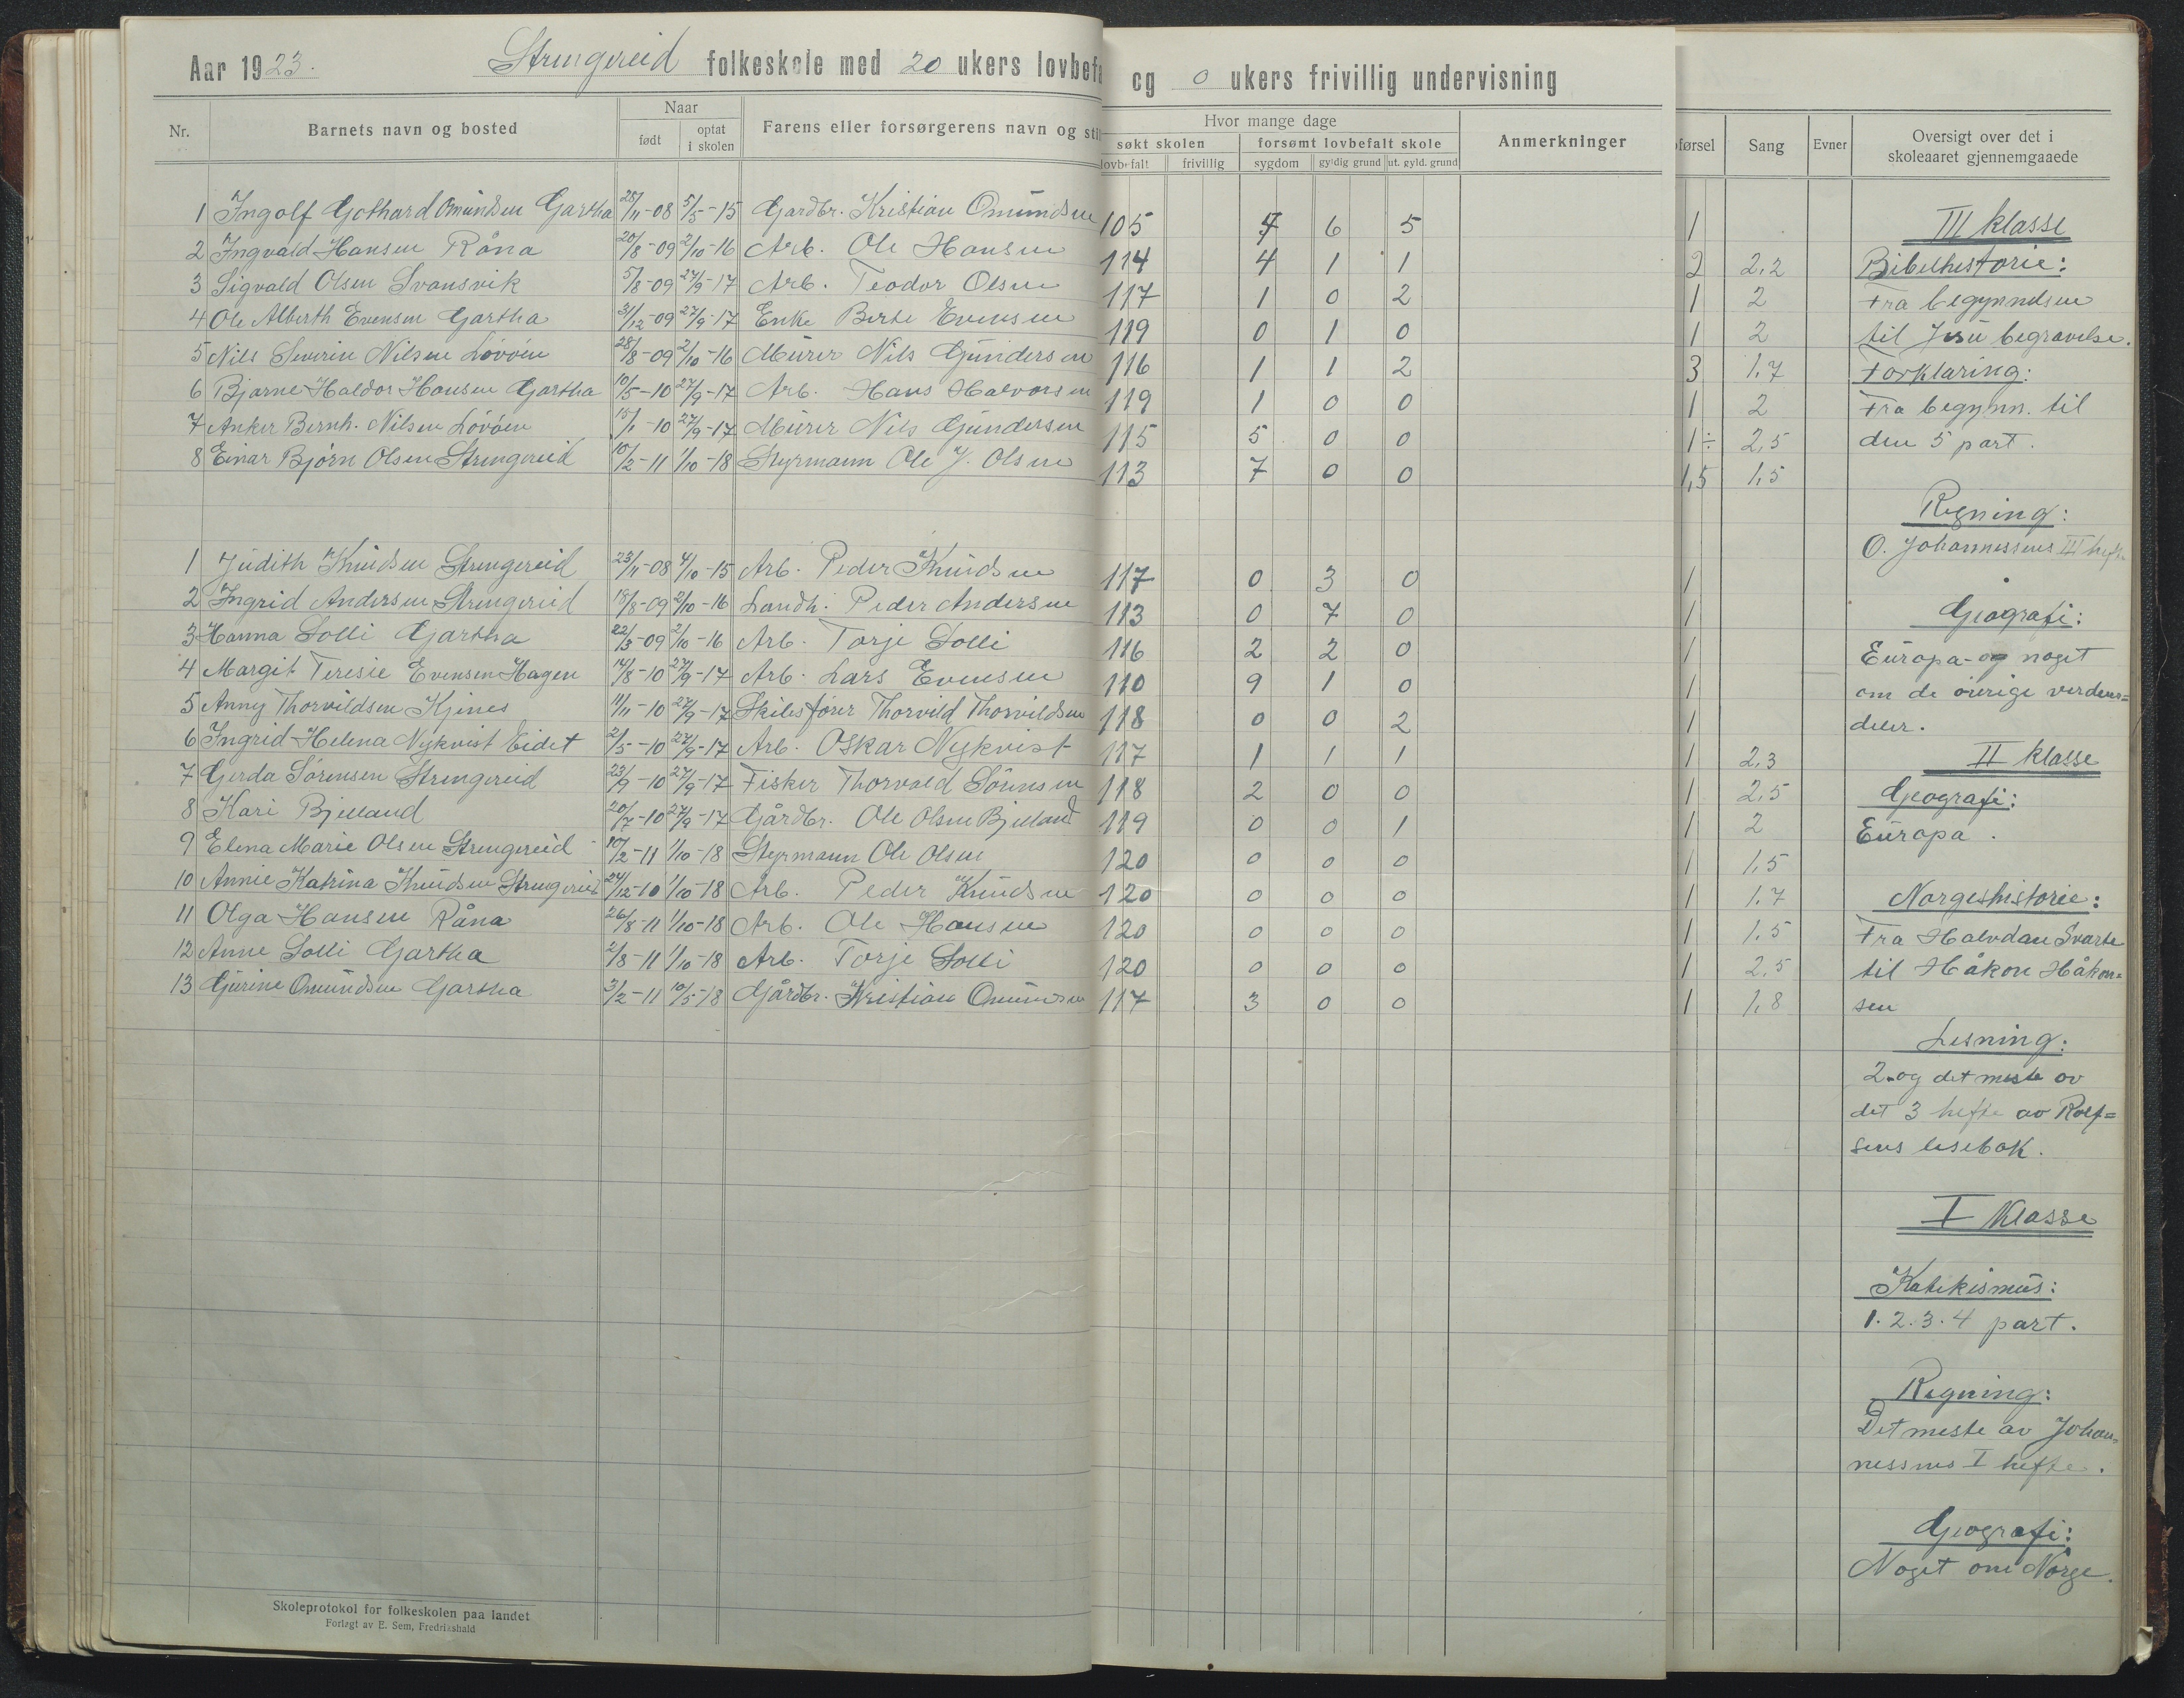 Aar 1923. Strengereid folkeskole med 20 ukers lovbefa og 0 ukers frivillig undervisning
Nr. Barnets navn og bosted Naar født optat i skolen Farens eller forsørgerens navn og stil
Hvor mange dage søkt skolen lovbefalt frivillig forsømt lovbefalt skole sygdom gyldig grund ut. gyld. grund Anmerkninger
førsel Sang Evner Oversigt over det i skoleaaret gjennemgaaede
1 Ingolf Gothard Omundsen Gartha 28/11-08 5/5-15 Gardbr. Kristian Omundsen 105 7 6 5 1
2 Ingvald Hansen Råna 20/8-09 2/10-16 Arb. Ole Hansen 114 4 1 1 2 2,2
3 Sigvald Olsen Svansvik 5/8-09 27/9-17 Arb. Teodor Olsen 117 1 0 2 1 2
4 Ole Alberth Evensen Gartha 31/12-09 27/9-17 Enke Berte Evensen 119 0 1 0 1 2
5 Nils Severin Nilsen Løvøen 28/8-09 2/10-16 Murer Nils Gundersen 116 1 1 2 3 1,7
6 Bjarne Haldor Hansen Gartha 10/5-10 27/9-17 Arb. Hans Halvorsen 119 1 0 0 1 2
7 Anker Bernh. Nilsen Løvøen 15/1-10 27/9-17 Murer Nils Gundersen 115 5 0 0 1÷ 2,5
8 Einar Bjørn Olsen Strengereid 10/2-11 1/10-18 Styrmann Ole J. Olsen 113 7 0 0 1,5 1,5
1 Judith Knudsen Strengereid 23/11-08 4/10-15 Arb. Peder Knudsen 117 0 3 0 1
2 Ingrid Andersen Strengereid 18/8-09 2/10-16 Landh. Peder Andersen 113 0 7 0 1
3 Hanna Solli Gartha 22/3-09 2/10-16 Arb. Torje Solli 116 2 2 0 1
4 Margit Teresie Evensen Hagen 14/8-10 27/9-17 Arb. Lars Evensen 110 9 1 0 1
5 Anny Thorvildsen Kjenes 11/11-10 27/9-17 Skibsfører Thorvild Thorvildsen 118 0 0 2 1
6 Ingrid Helena Nykvist Eidet 2/5-10 27/9-17 Arb. Oskar Nykvist 117 1 1 1 1 2,3
7 Gerda Sørensen Strengereid 23/9-10 27/9-17 Fisker Thorvald Sørensen 118 2 0 0 1 2,5
8 Kari Bjelland 20/7-10 27/9-17 Gårdbr. Ole Olsen Bjelland 119 0 0 1 1 2
9 Elena Marie Olsen Strengereid 10/2-11 1/10-18 Styrmann Ole Olsen 120 0 0 0 1 1,5
10 Annie Katrina Knudsen Strengereid 24/12-10 1/10-18 Arb. Peder Knudsen 120 0 0 0 1 1,7
11 Olga Hansen Råna 26/8-11 1/10-18 Arb. Ole Hansen 120 0 0 0 1 1,5
12 Anne Solli Gartha 2/8-11 1/10-18 Arb. Torje Solli 120 0 0 0 1 2,5
13 Gurine Omundsen Gartha 3/2-11 10/5-18 Gårdbr. Kristian Omundsen 117 3 0 0 1 1,8
III klasse
Bibelhistorie:
Fra begynnelsen
til Jesu begravelse.
Forklaring:
Fra begynn. til
den 5 part.
Regning:
O. Johannessens III hefte
Geografi:
Europa og noget
om de øverige verdens=
deler.
II klasse
Geografi:
Europa.
Norgeshistorie:
Fra Halvdan Svarte
til Håkon Håkon=
sen
Lesning:
2. og det meste av
det 3 hefte av Rolf=
sens lesebok.
I Klasse
Katekismus:
1. 2. 3. 4 part.
Regning:
Det meste av Johan=
nessens I hefte.
Geografi:
Noget om Norge.
Skoleprotokol for folkeskolen paa landet
Forlagt av E. Sem, Fredrikshald